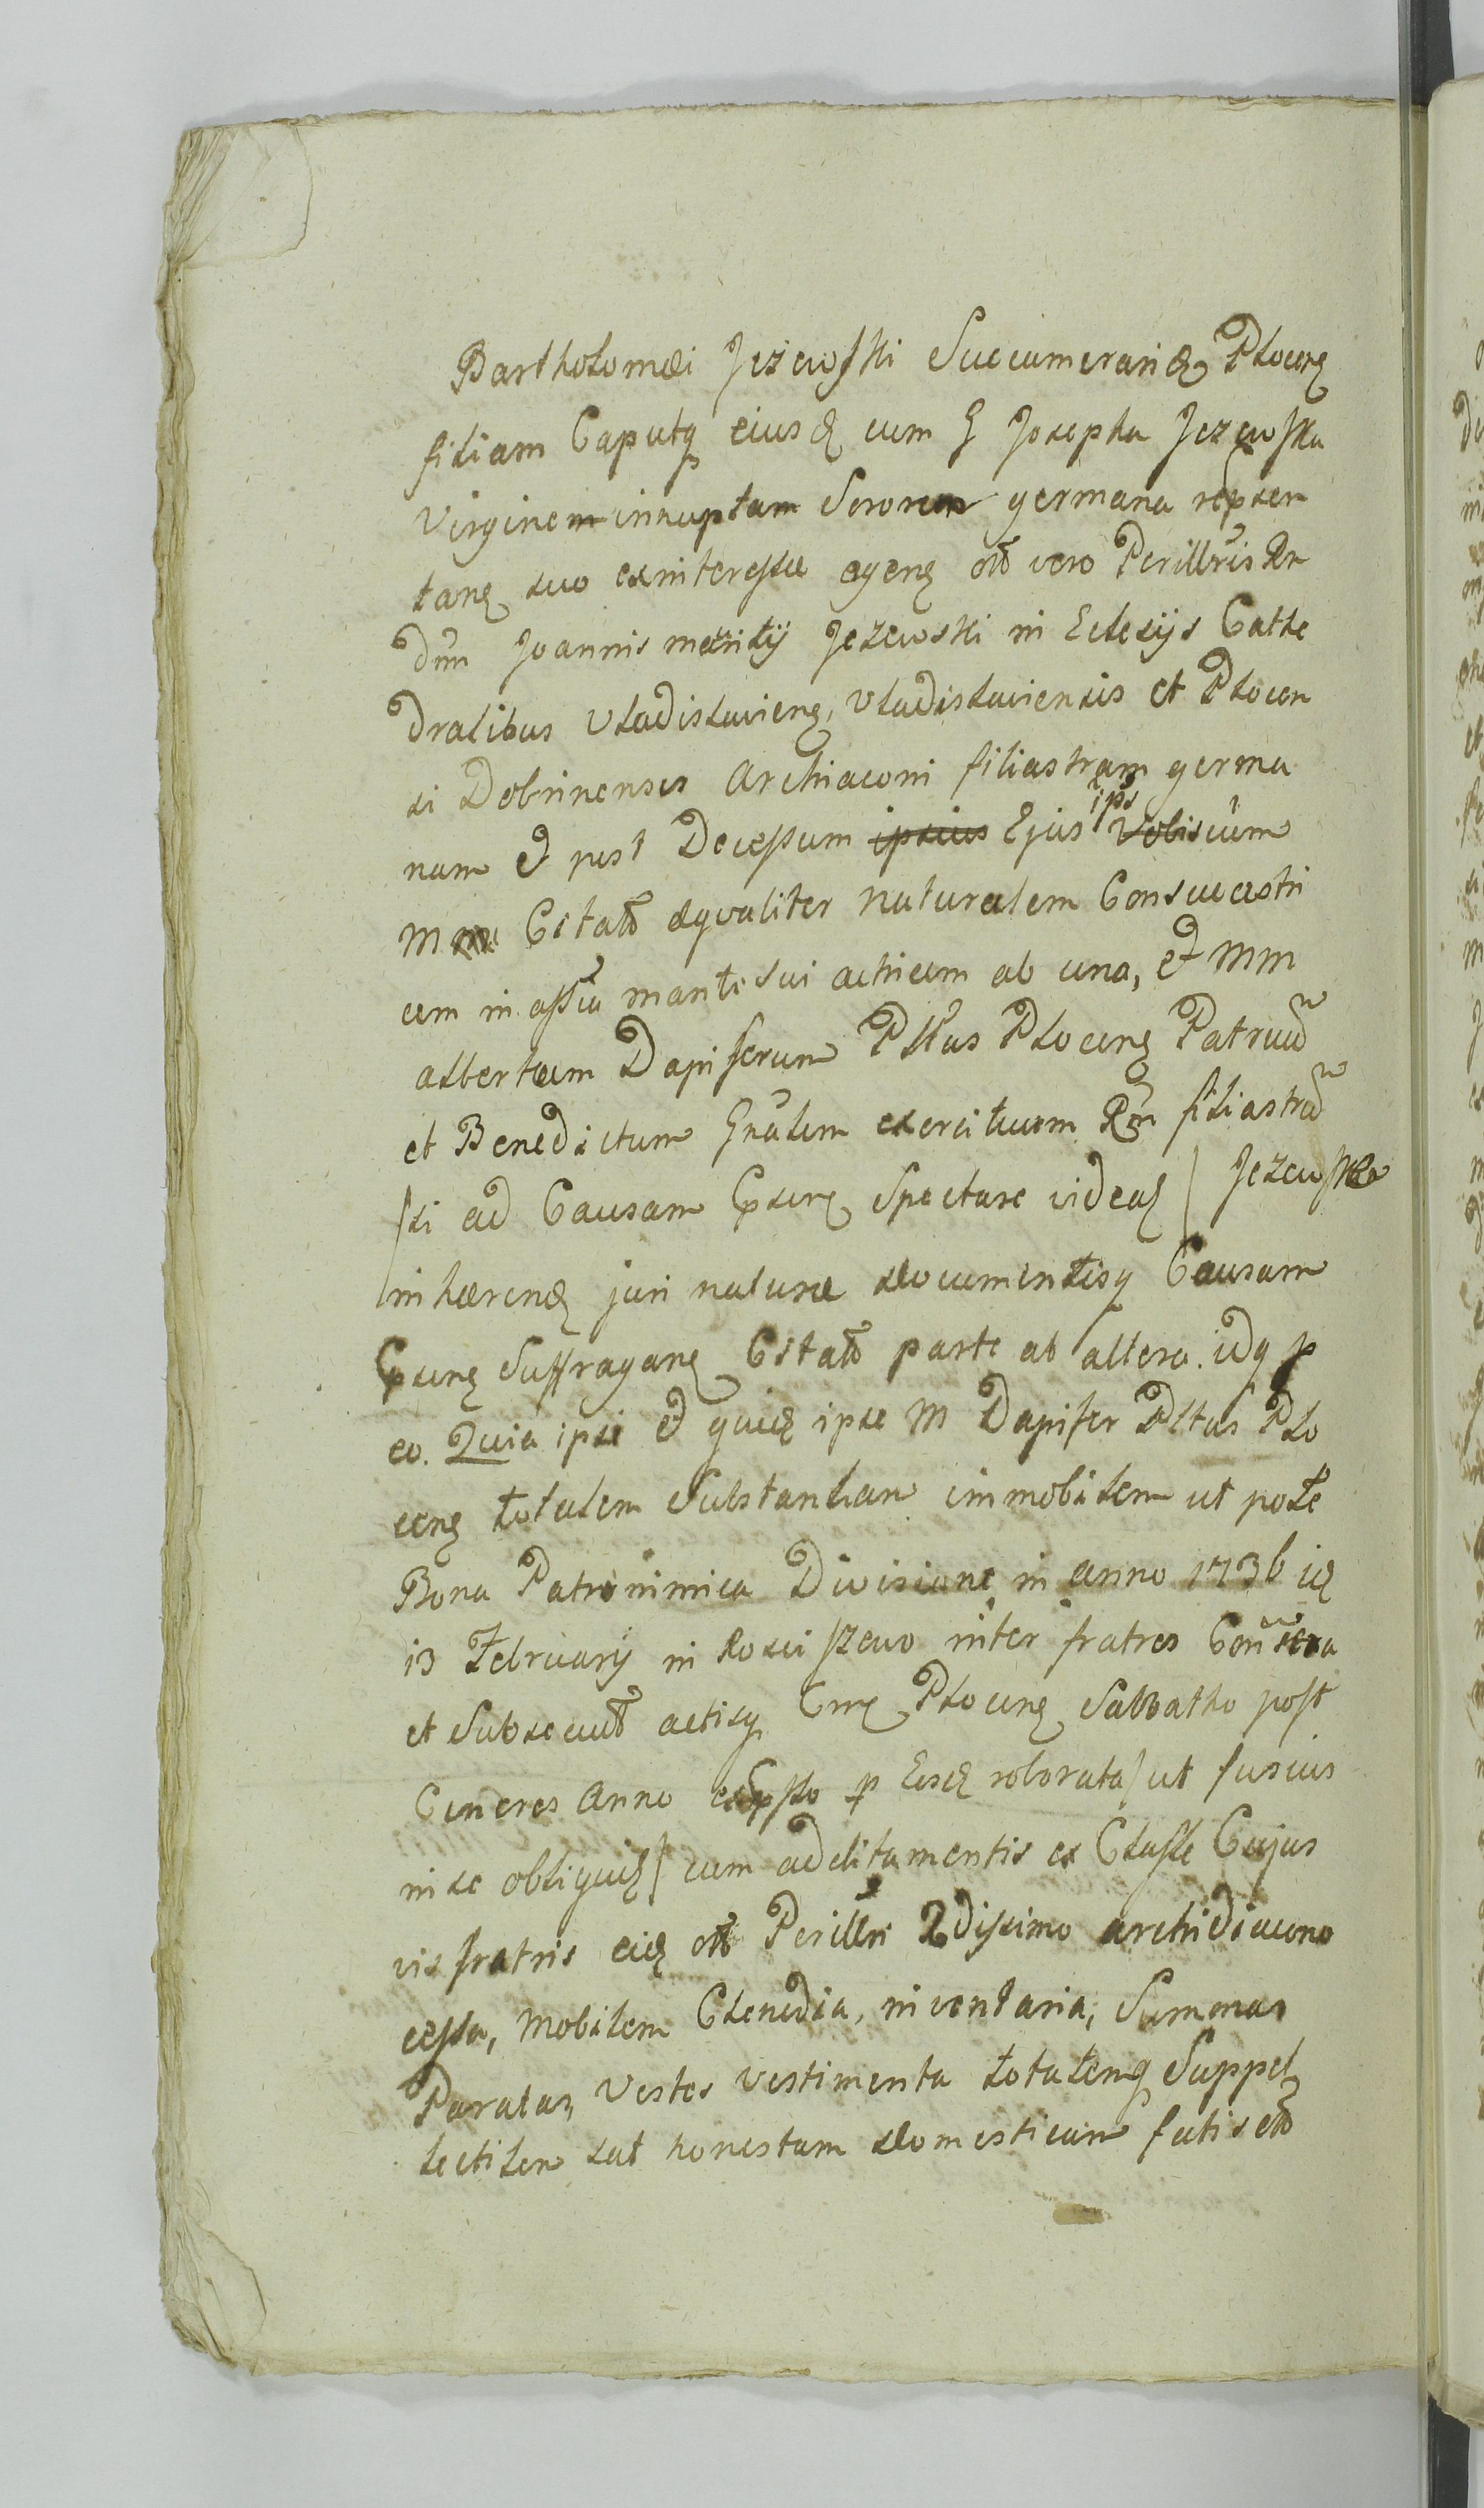 Bartholomæi Jezewski Succamerarid Plocen
filiam Caputq eiusd cum G Josepha Jezewska
Virginem innuptam Sororem germana repsen
tane suo exinteresse agene olim vero Perillris Rn
dnn Joannis Jezewski in Eclesijs Cathe
Dralibus Vladislaviene, Vladislaviensis et Plocen
si Dobrinensis Archiaconi filiastram germa
nam et post Decessum ipsius Ejus ips Vobiscum
M Citatō æqualiter naturalem Consuccestri
cem in assā mantesui actricem ab una, et Mm
albertum Dapiferum Pltus Plocene Patruū
et Benedictum Gnalem exercituum Rm filiastrū
/si ad Causam Gpsene Spectare videat/ Jezewska
inhærend juri naturæ documentisq Causam
Gpsene Suffragane Citatō parte ab altera. idq p
eo. Quia ipse et quid ipse M Dapifer Pltus Plo
cene totalem Substantiam immobilem ut pote
Bona Patronimica Divisione in anno 1736 id
13 February in Rosciszewo inter fratres
et Subsecutō actisq Cne Plocene Sabbatho post
Cineres Anno p Eosd roborata/ ut fusius
in se obliquit/ cum additamentis ex Classe Cujus
vis fratris eid olim Perillri Rdissimo archidiacono
cessa, Mobilem Clenodia, inventaria, Summas
Paratas, Vestes vestimenta totalemq Suppel
lectilem sat honestam domesticam